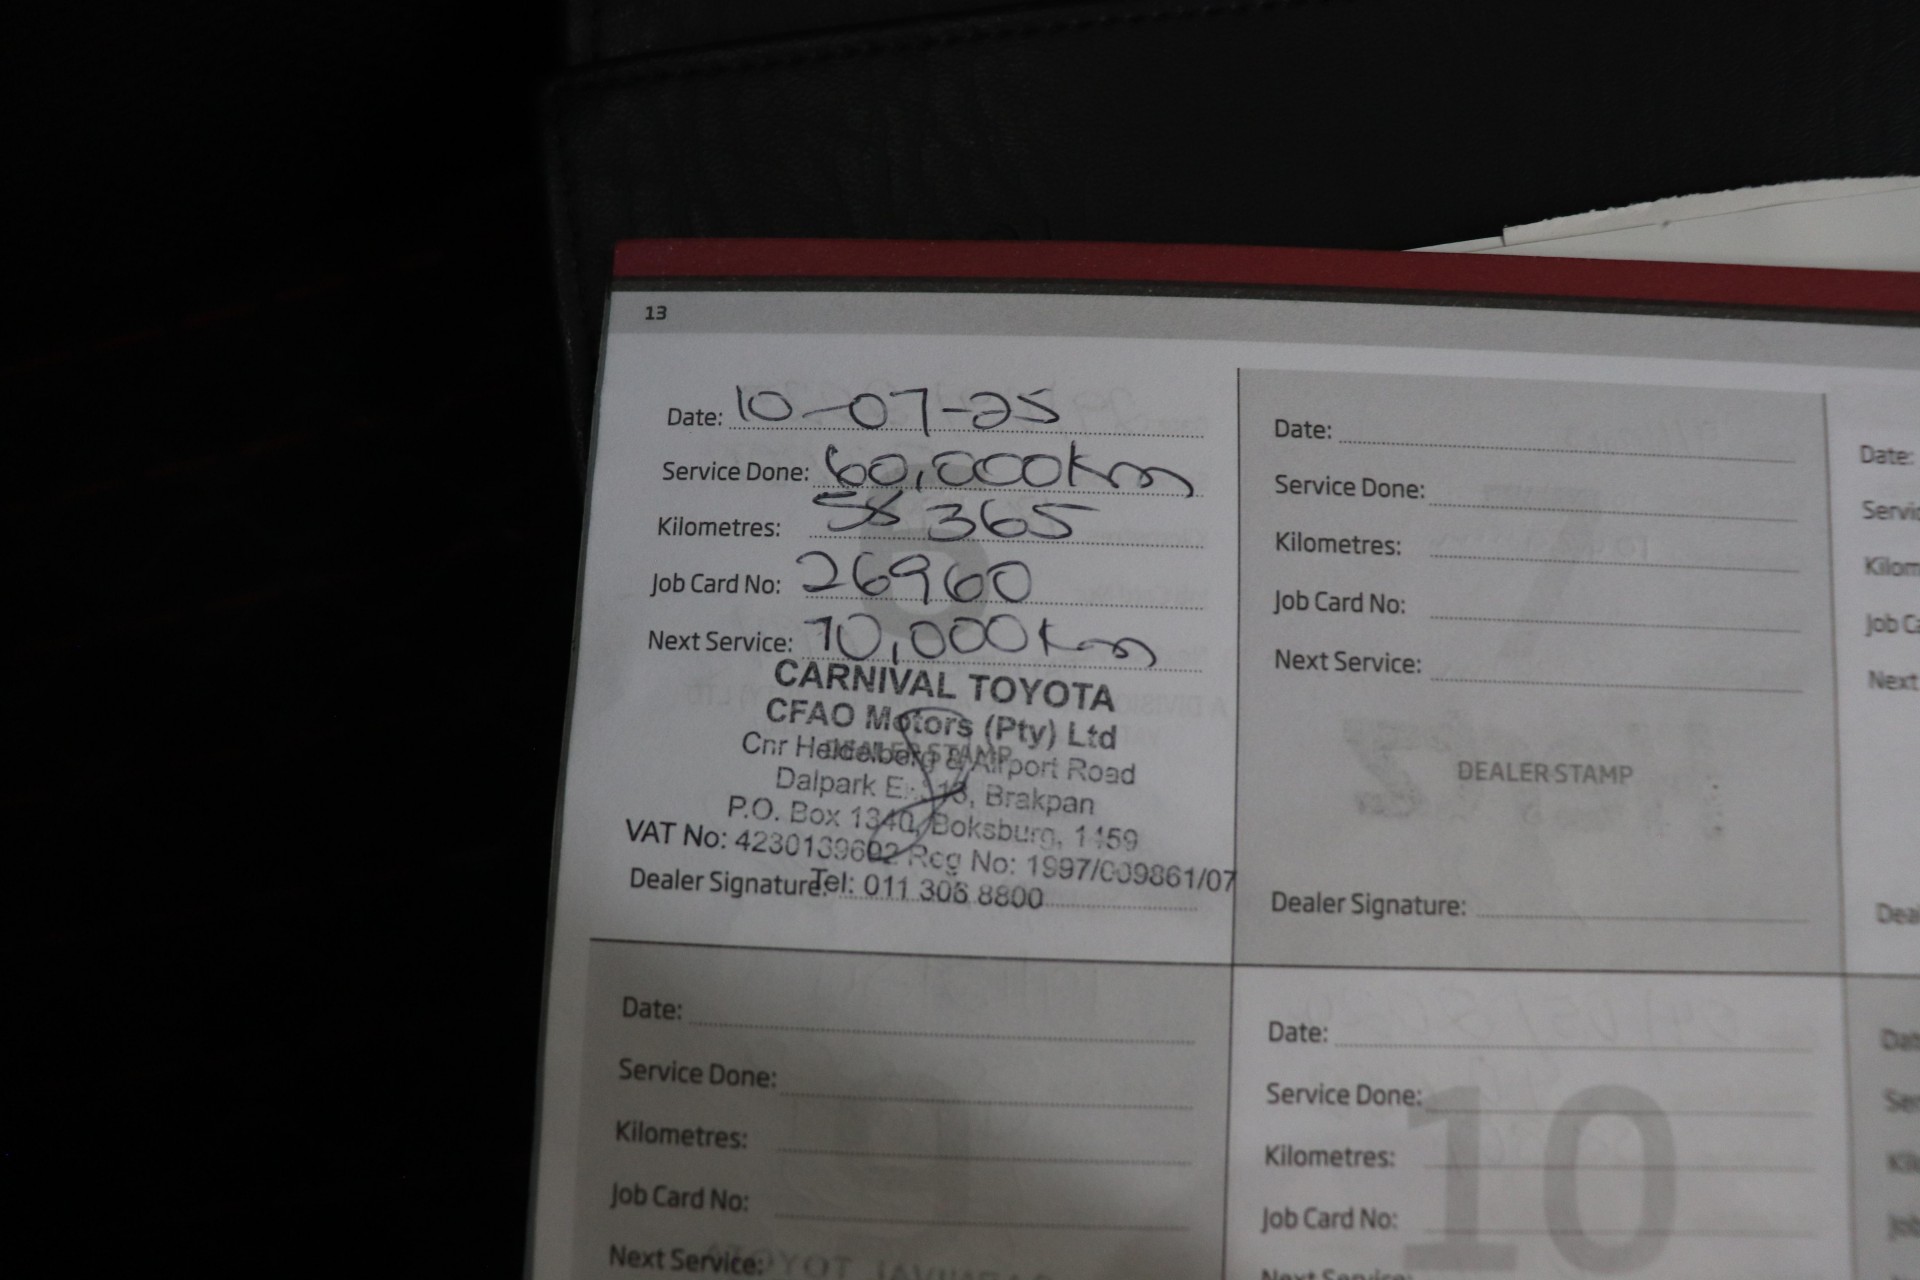 13
Date: 10-07-25
Service Done: 60,000km
Kilometres: 58 365
Job Card No: 26960
Next Service: 70,000km
CARNIVAL TOYOTA
CFAO Motors (Pty) Ltd
Cnr Heidelberg & Airport Road
DEALER STAMP
Dalpark Brakpan
P.O. Box 1340, Boksburg, 1459
VAT No: 4230139602 Reg No: 1997/009861/07
Dealer Signature: Tel: 011 306 8800
Date:
Service Done:
Kilometres:
Job Card No:
Next Service:
DEALER STAMP
Dealer Signature:
Date:
Next
Date:
Service Done:
Kilometres:
Job Card No:
Next Service:
Date:
Service Done:
Kilometres:
Job Card No:
10
Next Service: